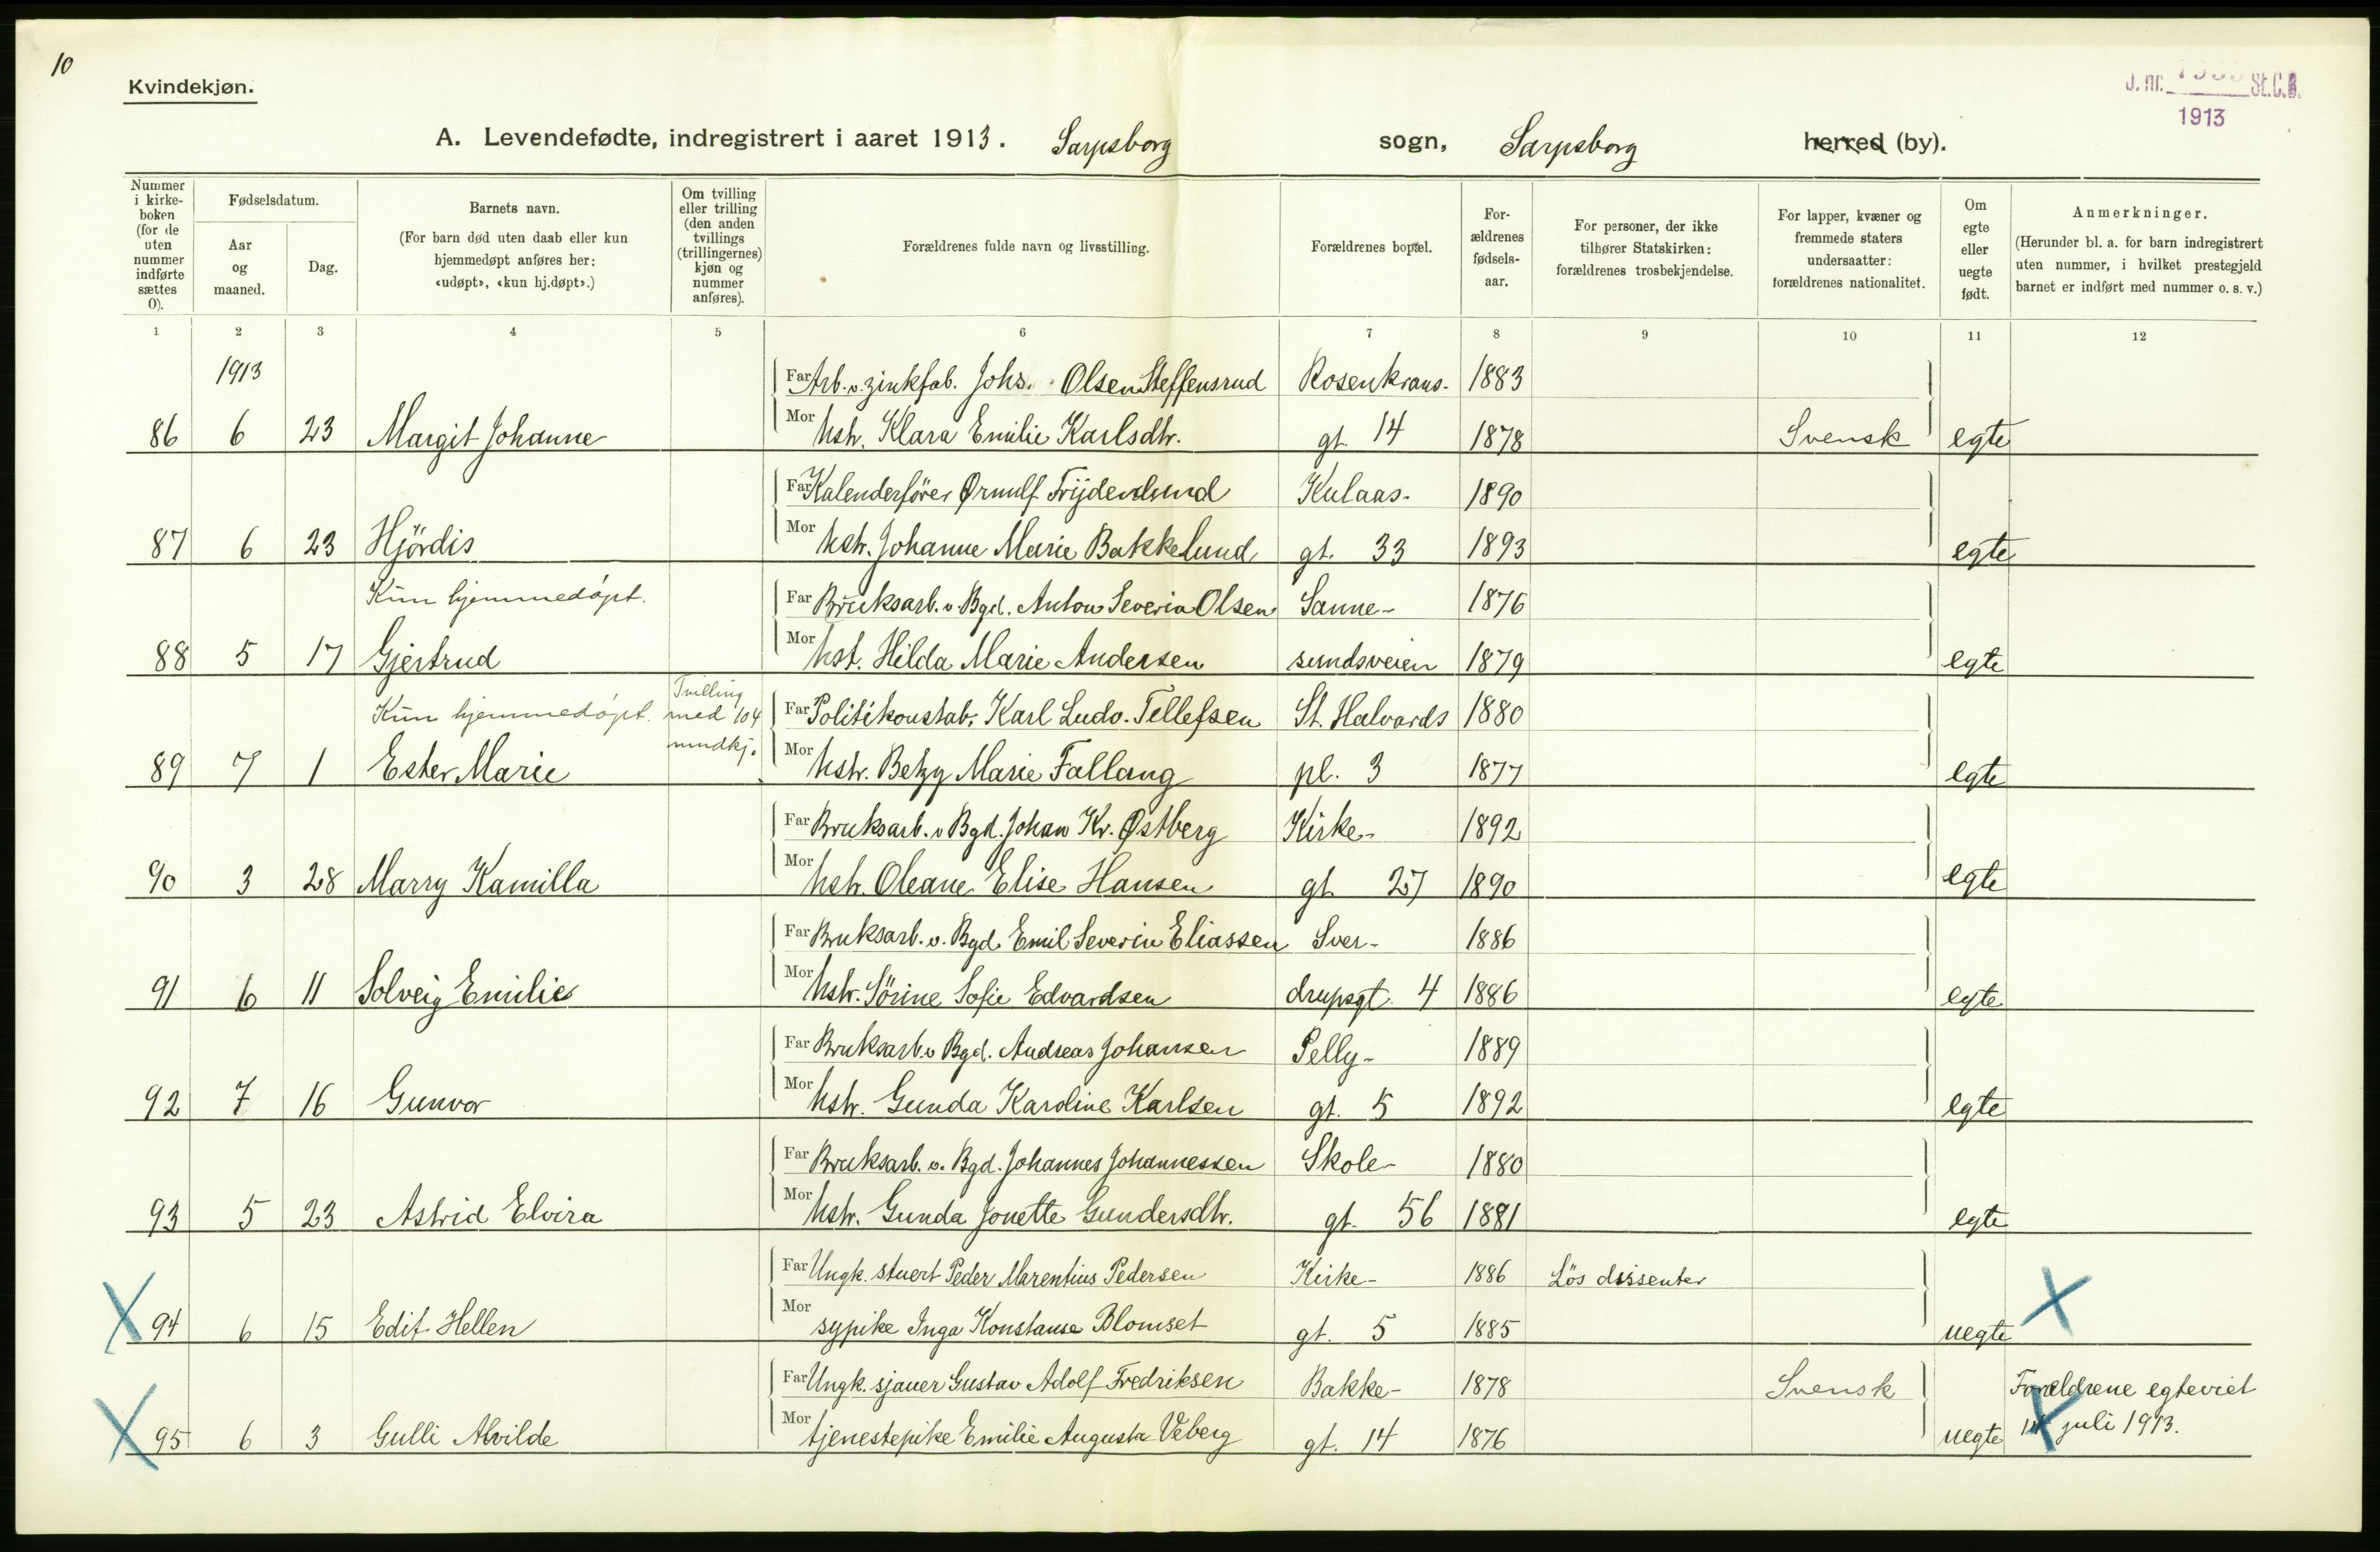 10
Kvindekjøn.
J. nr. St.C.B.
1913
A. Levendefødte, indregistrert i aaret 1913. Sarpsborg sogn, Sarpsborg herred (by).
Nummer i kirke-boken (for de uten nummer indførte sættes 0).
Fødselsdatum.
Aar og maaned.
Dag.
Barnets navn.
(For barn død uten daab eller kun hjemmedøpt anføres her: «udøpt», «kun hj.døpt».)
Om tvilling eller trilling (den anden tvillings (trillingernes) kjøn og nummer anføres).
Forældrenes fulde navn og livsstilling.
Forældrenes bopæl.
For-ældrenes fødsels-aar.
For personer, der ikke tilhører Statskirken: forældrenes trosbekjendelse.
For lapper, kvæner og fremmede staters undersaatter: forældrenes nationalitet.
Om egte eller uegte født.
Anmerkninger.
(Herunder bl. a. for barn indregistrert uten nummer, i hvilket prestegjeld barnet er indført med nummer o. s. v.)
1 2 3 4 5 6 7 8 9 10 11 12
1913 Far Arb. v. zinkfab. Johs. Olsen Steffensrud Rosenkrans- 1883
86 6 23 Margit Johanne Mor hstr. Klara Emilie Karlsdtr. gt. 14 1878 Svensk egte
Far Kalenderfører Ørnulf Trijdenlund Kulaas- 1890
87 6 23 Hjördis Mor hstr. Johanne Marie Bakkelund gt. 33 1893 egte
Kun hjemmedøpt. Far Bruksarb. v. Bgd. Anton Severin Olsen Sanne- 1876
88 5 17 Gjertrud Mor hst. Hilda Marie Andersen sundsveien 1879 egte
Kun hjemmedøpt. Tvilling med 104 mndkj. Far Politikonstab. Karl Ludv. Tellefsen St. Halvards 1880
89 7 1 Ester Marie Mor hstr. Betzy Marie Fallang pl. 3 1877 egte
Far Bruksarb. v Bgd. Johan Kr. Østberg Kirke- 1892
90 3 28 Marry Kamilla Mor hstr. Oleane Elise Hansen gt 27 1890 egte
Far Bruksarb. v. Bgd. Emil Severin Eliassen Sver- 1886
91 6 11 Solveig Emilie Mor hstr. Sörine Sofie Edvardsen drupsgt. 4 1886 egte
Far Bruksarb. v Bgd. Andreas Johansen Pelly- 1889
92 7 16 Gunvor Mor hstr. Gunda Karoline Karlsen gt. 5 1892 egte
Far Bruksarb. v. Bgd. Johannes Johannessen Skole- 1880
93 5 23 Astrid Elvira Mor hstr. Gunda Jonette Gundersdtr. gt. 56 1881 egte
Far Ungk. stuert Peder Marentius Pedersen Kirke- 1886 Lös dissenter
94 6 15 Edit Hellen Mor sypike Inga Konstanse Blomset gt. 5 1885 uegte
Far Ungk. sjauer Gustav Adolf Fredriksen Bakke- 1878 Svensk Forældrene egteviet
95 6 3 Gulli Alvilde Mor tjenestepike Emilie Augusta Veberg gt. 14 1876 uegte juli 1913.